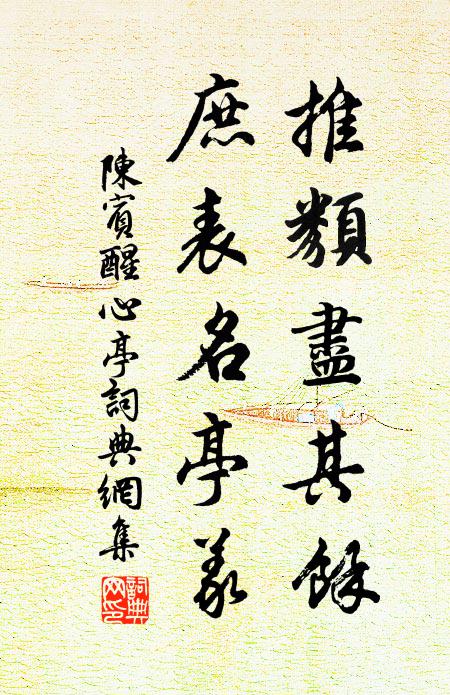 推類盡其餘
庶表名亭義
陳賓醒心亭詞典網集
詞典
網